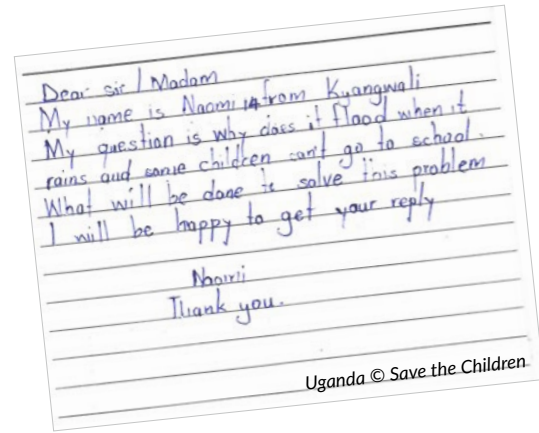 Dear sir / Madam
My name is Naomi 14 from Kyangwali
My question is why does it flood when it
rains and some children can't go to school.
What will be done to solve this problem
I will be happy to get your reply
Naomi
Thank you.
Uganda © Save the Children